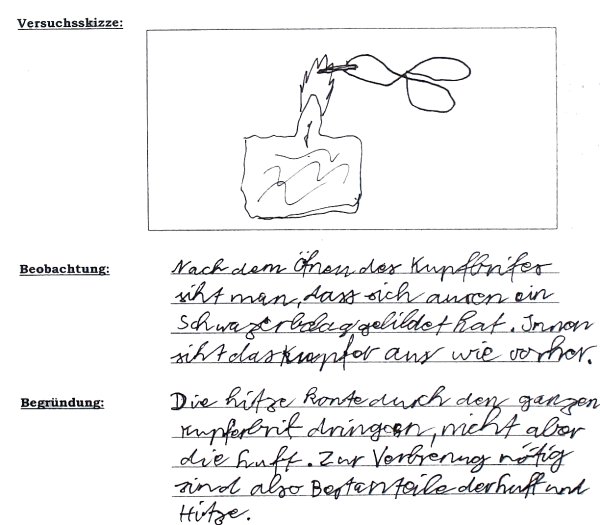 Versuchsskizze:
Beobachtung:
Nach dem Öfnen des Kupfbrifes
siht man, dass sich ausen ein
Schwazerbelag gelildet hat. Innen
siht das Kupfer aus wie vorher.
Begründung:
Die hitze konte durch den ganzen
Kupferbrif dringen, nicht aber
die luft. Zur Verbrenung nötig
sind also Bestanteile der luft und
Hitze.